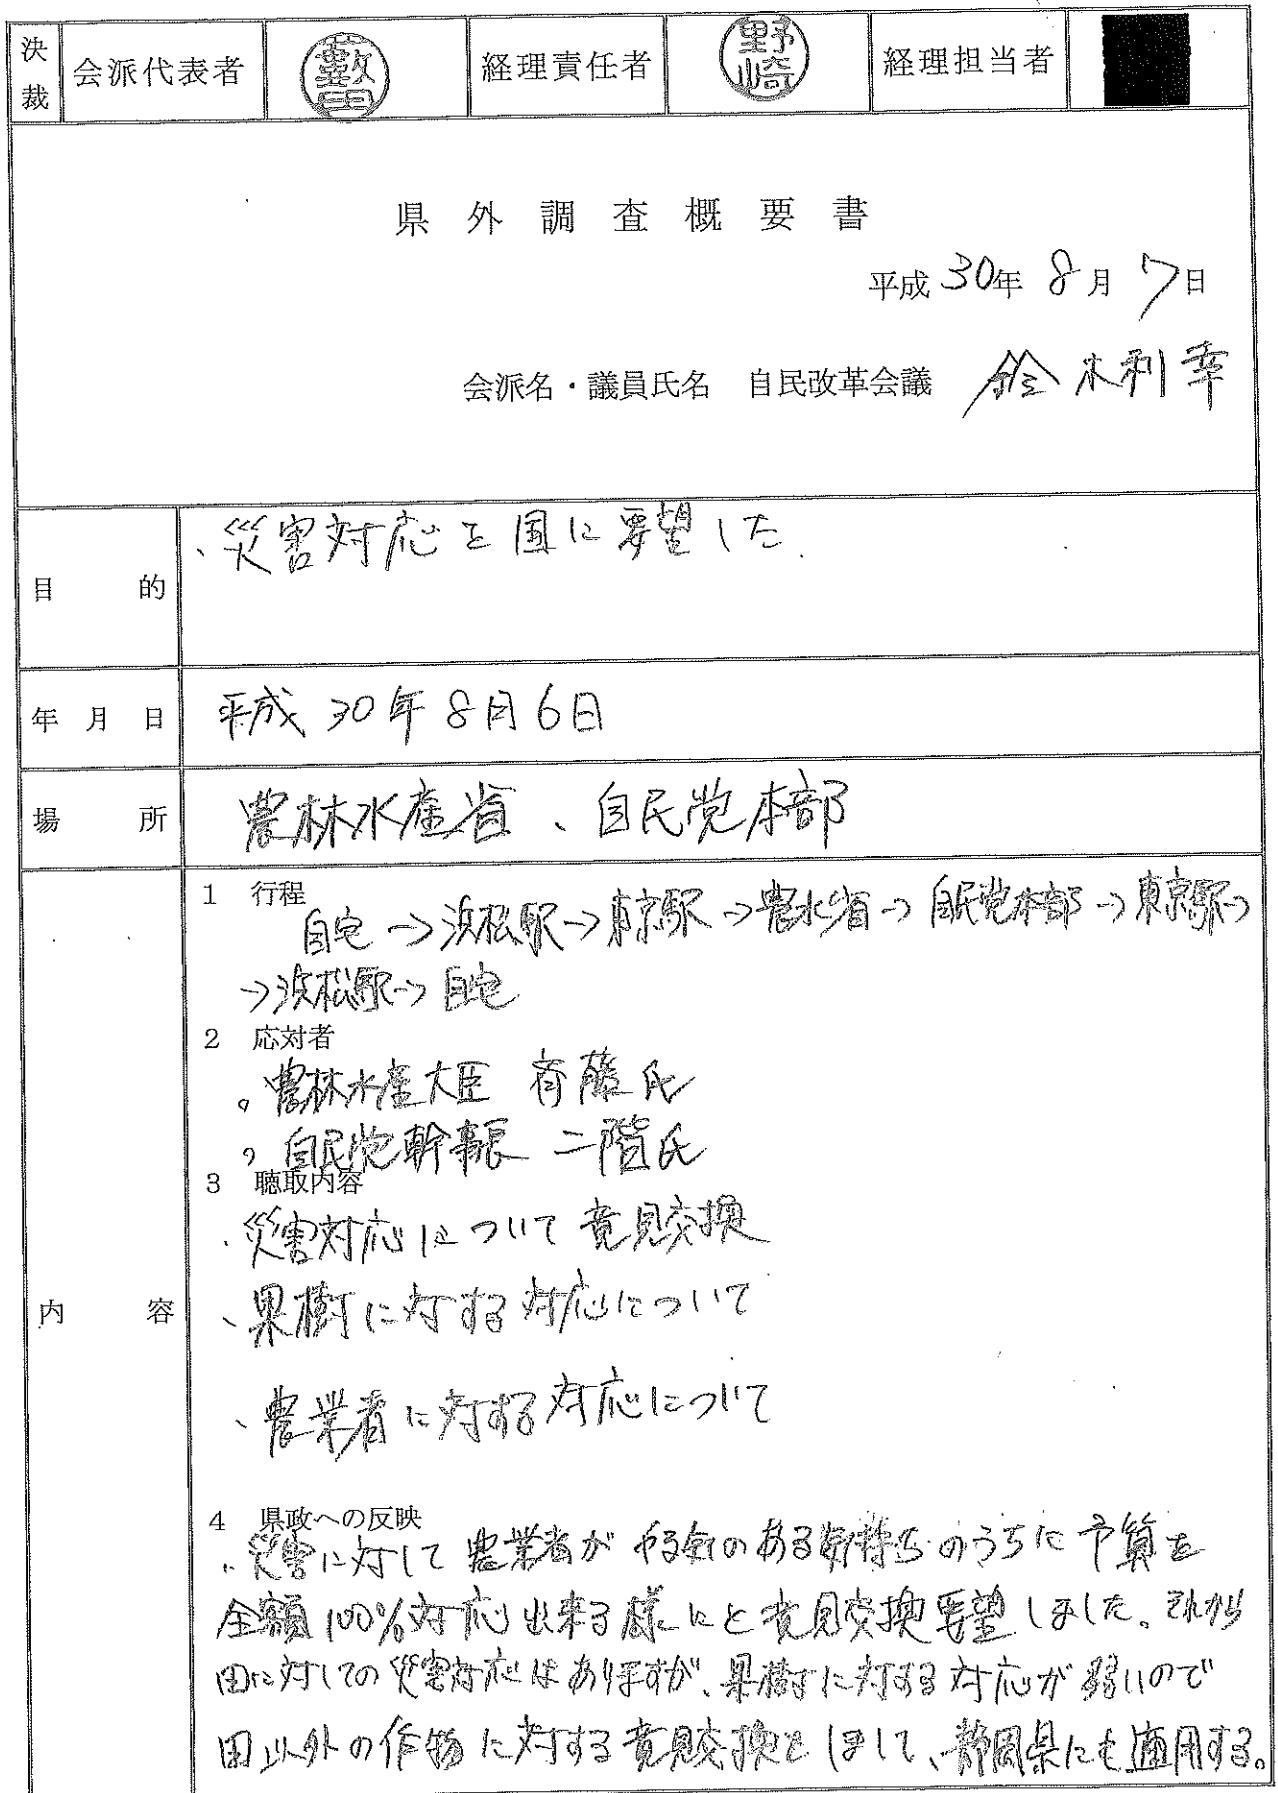 決裁 会派代表者 藪田 経理責任者 野崎 経理担当者
県外調査概要書
平成30年8月7日
会派名・議員氏名 自民改革会議 鈴木利幸
目的
、災害対応を国に要望した
年月日 平成30年8月6日
場所 農林水産省、自民党本部
内容
1 行程
自宅→浜松駅→東京駅→農水省→自民党本部→東京駅→
→浜松駅→自宅
2 応対者
。農林水産大臣 斉藤氏
。自民党幹事長 二階氏
3 聴取内容
・災害対応について意見交換
、果樹に対する対応について
、農業者に対する対応について
4 県政への反映
・災害に対して農業者がやる気のある気持ちのうちに予算を
全額100%対応出来る様にと意見交換要望しました。それから
田に対しての災害対応はありますが、果樹に対する対応が弱いので
田以外の作物に対する意見交換としまして、静岡県にも適用する。